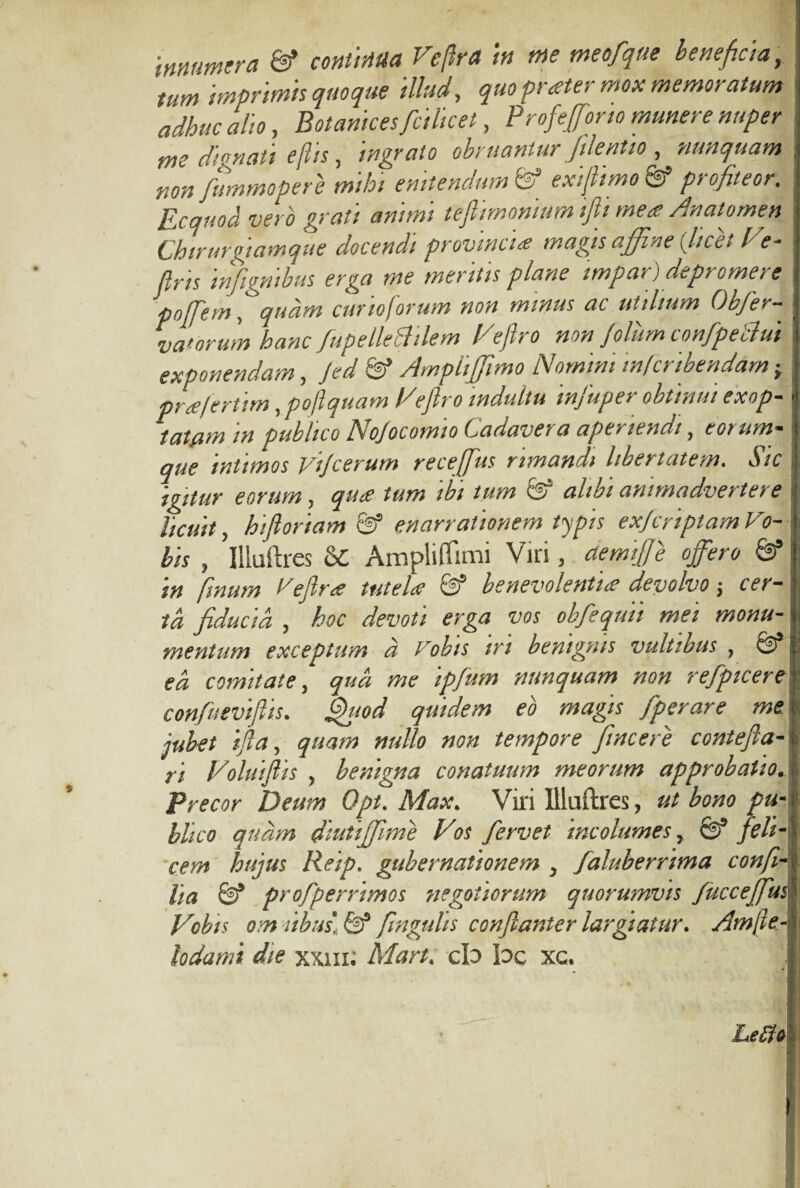 innumera & continua Veſtra in me meoſque beneficia,
tum imprimis quoque illud, quo præter mox memoratum
adhuc alio, Botanices ſcilicet, Profeſſorio munere nuper
me dignati eſtis, ingrato obruantur ſilentio, nunquam
non ſummopere mihi enitendum & exiſtimo & profiteor.
Ecquod vero grati animi teſtimonium iſti meæ Anatomen
Chirurgiamque docendi provinciæ magis affine (licet Ve-
ſtris inſignibus erga me meritis plane impar) depromere
poſſem, quàm curioſorum non minus ac utilium Obſer-
vatorum hanc ſupellectilem Veſtro non ſolùm conſpectui
exponendam, ſed & Ampliſſimo Nomini inſcribendam;
præſertim, poſtquam Veſtro indultu inſuper obtinui exop-
tatam in publico Noſocomio Cadavera aperiendi, eorum-
que intimos Viſcerum receſſus rimandi libertatem. Sic
igitur eorum, quæ tum ibi tum & alibi animadvertere
licuit, hiſtoriam & enarrationem typis exſcriptam Vo-
bis, Illuſtres & Ampliſſimi Viri, demiſſè offero &
in ſinum Veſtræ tutelæ & benevolentiæ devolvo; cer-
tâ fiduciâ, hoc devoti erga vos obſequii mei monu-
mentum exceptum à Vobis iri benignis vultibus, &
eâ comitate, quâ me ipſum nunquam non reſpicere
conſueviſtis. Quod quidem eò magis ſperare me
jubet iſta, quam nullo non tempore ſincerè conteſta-
ri Voluiſtis, benigna conatuum meorum approbatio.
Precor Deum Opt. Max. Viri Illuſtres, ut bono pu-
blico quàm diutiſſimè Vos ſervet incolumes, & feli-
cem hujus Reip. gubernationem, ſaluberrima conſi-
lia & proſperrimos negotiorum quorumvis ſucceſſus
Vobis omnibus & ſingulis conſtanter largiatur. Amſte-
lodami die XXIII; Mart. cIↃ IↃc xc.
Lecto